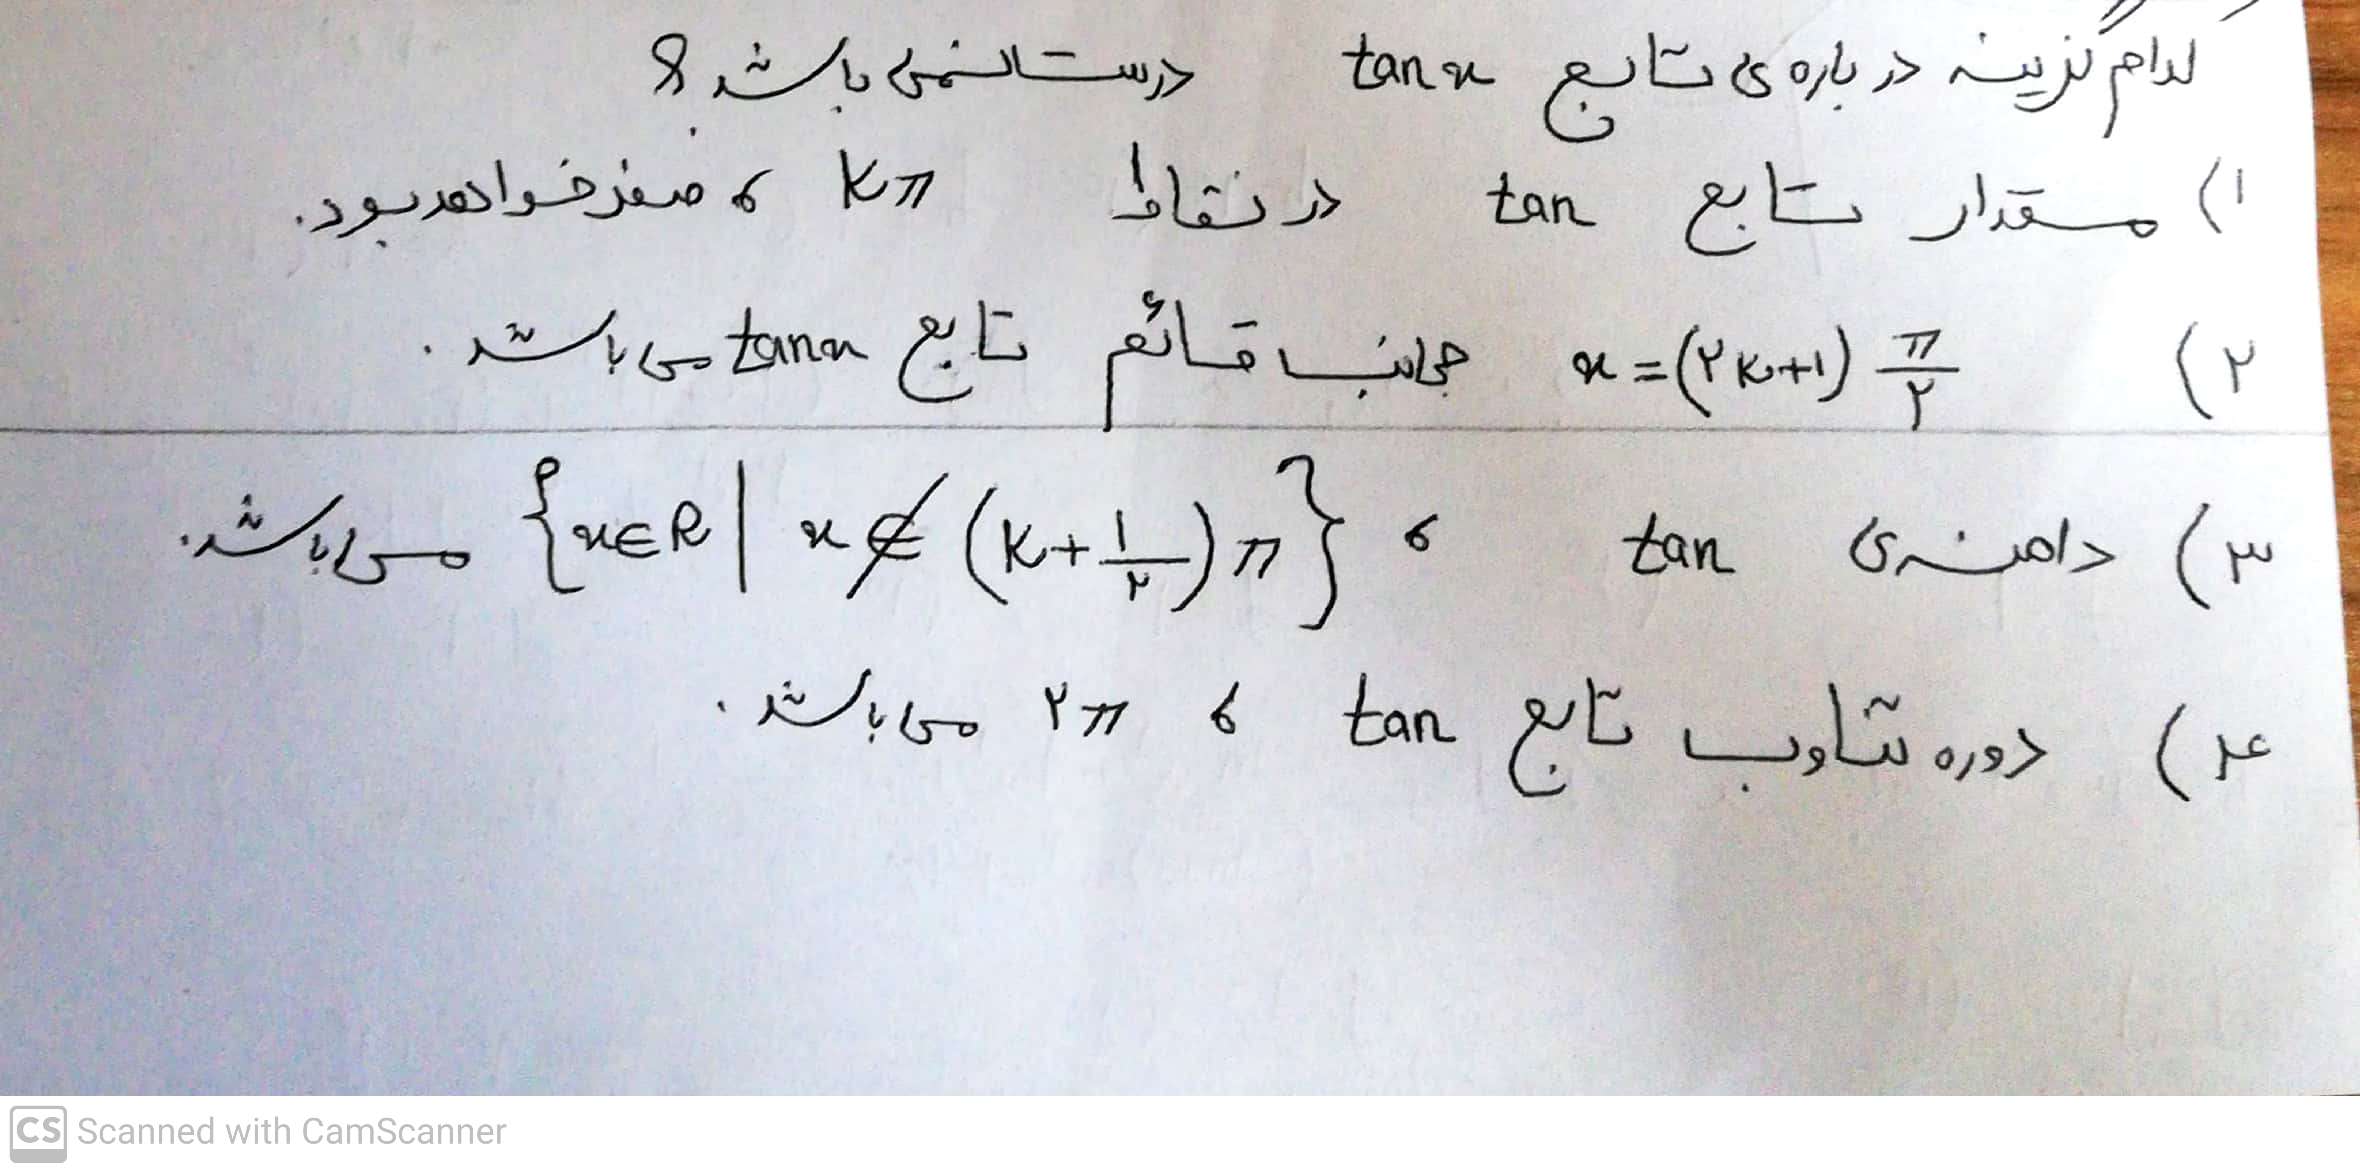 کدام گزینه در باره ی تابع tan x درست نمی باشد؟
۱) مقدار تابع tan در نقاط kπ ، صفر خواهد بود.
۲) x = (۲k+۱) π/۲ مجانب قائم تابع tan x می باشد.
۳) دامنه ی tan ، {x∈R | x∉ (k+ ۱/۲) π} می باشد.
۴) دوره تناوب تابع tan ، ۲π می باشد.
CS Scanned with CamScanner